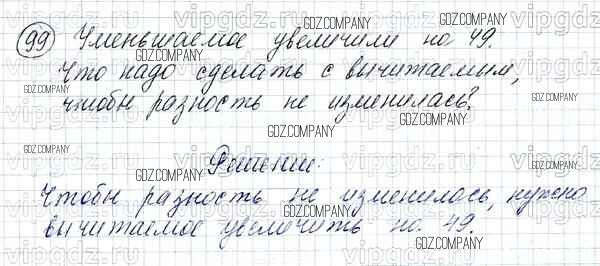 99 Уменьшаемое увеличили на 49.
Что надо сделать с вычитаемым,
чтобы разность не изменилась?
Решение:
Чтобы разность не изменилась, нужно
вычитаемое увеличить на 49.